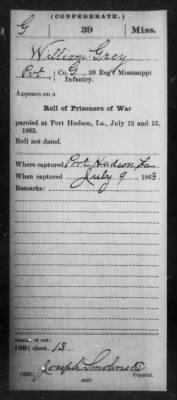 (CONFEDERATE.)
G 39 Miss.
William Grey
Pvt, Co. G, 39 Reg't Mississippi
Infantry.
Appears on a
Roll of Prisoners of War
paroled at Port Hudson, La., July 12 and 13,
1863.
Roll not dated.
Where captured Port Hudson, La.
When captured July 9, 1863.
Remarks:
Number of roll:
169; sheet 13
Joseph
(639) Copyist.